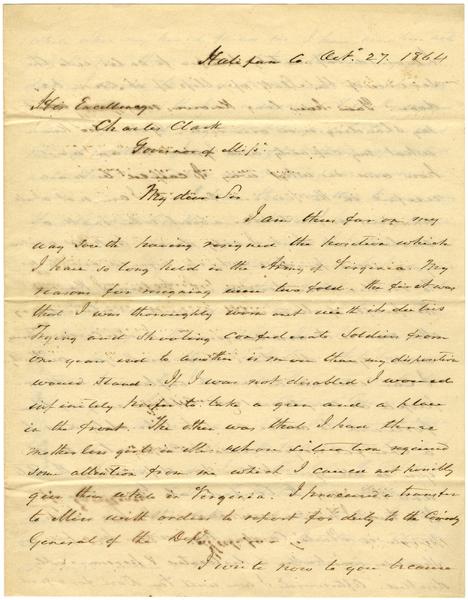 Halifax Co. Oct. 27. 1864
His Excellency
Charles Clark
Governor of Miss
My dear Sir
I am thus far on my
way South having resigned the position which
I have so long held in the Army of Virginia. My
reasons for resigning were two fold. the first was
that I was thoroughly worn out with its duties
Trying and shooting Confederate Soldiers from
one years end to another is more than my disposition
would stand. If I was not disabled I would
infinitely prefer to take a gun and a place
in the front. The other was that I had three
motherless girls in Miss. whose situation required
some attention from me which I could not possibly
give them while in Virginia. I procured a transfer
to Miss with orders to report for duty to the Comdg
General of the Dept.
I write now to you because